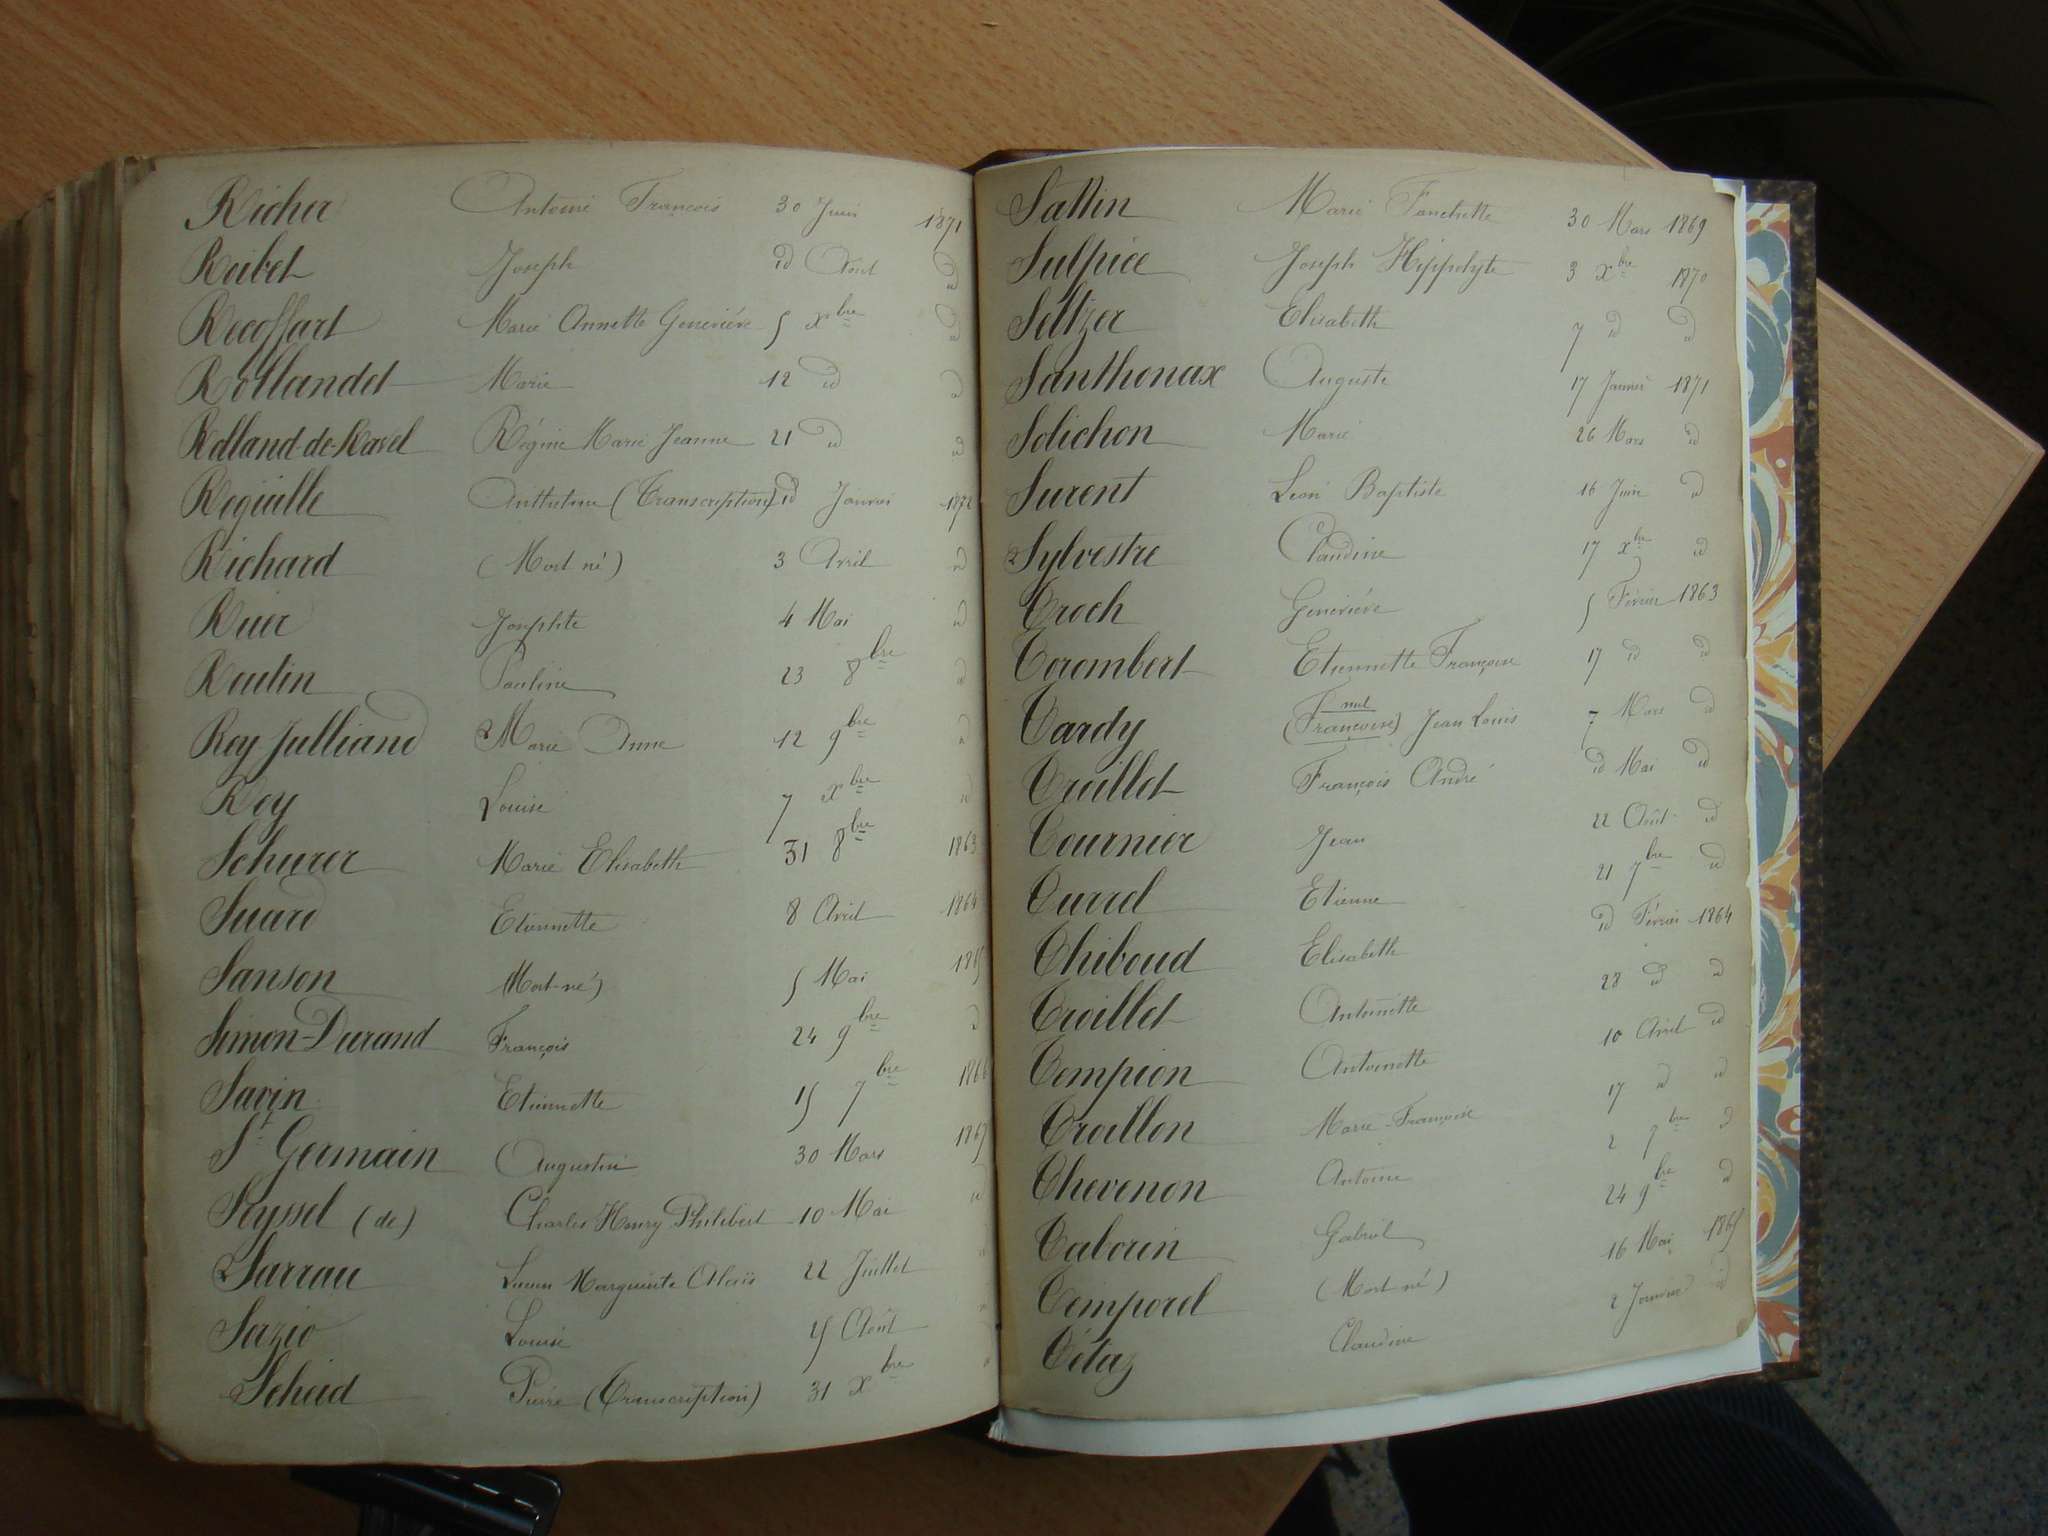 Richer Antoine François 30 Juin 1871
Ruibet Joseph id Août id
Recoffart Marie Annette Geneviève 5 xbre id
Rollandet Marie 12 id id
Rolland-de-Ravel Régine Marie Jeanne 21 id id
(Transcription) id Janvier 1872
Richard (Mort né) 3 Avril id
Ruer Josephte 4 Mai id
Rudin Pauline 23 8bre id
Rey Julliand Marie Anne 12 9bre id
Rey Louise 7 xbre id
Schurer Marie Elisabeth 31 8bre 1863
Suard Etiennette 8 Avril 1864
Sanson (Mort-né) 5 Mai 1865
Simon-Durand François 24 9bre id
Savin Etiennette 15 7bre 1866
St Germain Augustin 30 Mars 1867
Seyssel (de) Charles Henry Philibert 10 Mai id
Sarrau Marguerite 22 Juillet
Sazio Louise Août
Scheid Pierre (Transcription) 31 xbre
Sallin Marie Fanchette 30 Mars 1869
Sulpice Joseph Hippolyte 3 xbre 1870
Seltzer Elisabeth 7 id id
Santhonax Auguste 17 Janvier 1871
Solichon Marie 26 Mars id
Surent Léon Baptiste 16 Juin id
Sylvestre Claudine 17 xbre id
Troch Geneviève 5 Février 1863
Torombert Etiennette Françoise 17 id id
nul
Tardy (Françoise) Jean Louis 7 Mars id
Troillet François André id Mai id
Tournier Jean 22 Août id
Turrel Etienne 21 7bre id
Thiboud Elisabeth id Février 1864
Troillet Antoinette 28 id id
Tempion Antoinette 10 Avril id
Troillon Marie Françoise 17 id id
Thevenon Antoine 2 7bre id
Taborin Gabriel 24 9bre id
Temporel (Mort né) 16 Mai 1865
Tétaz Claudine 2 Janvier id